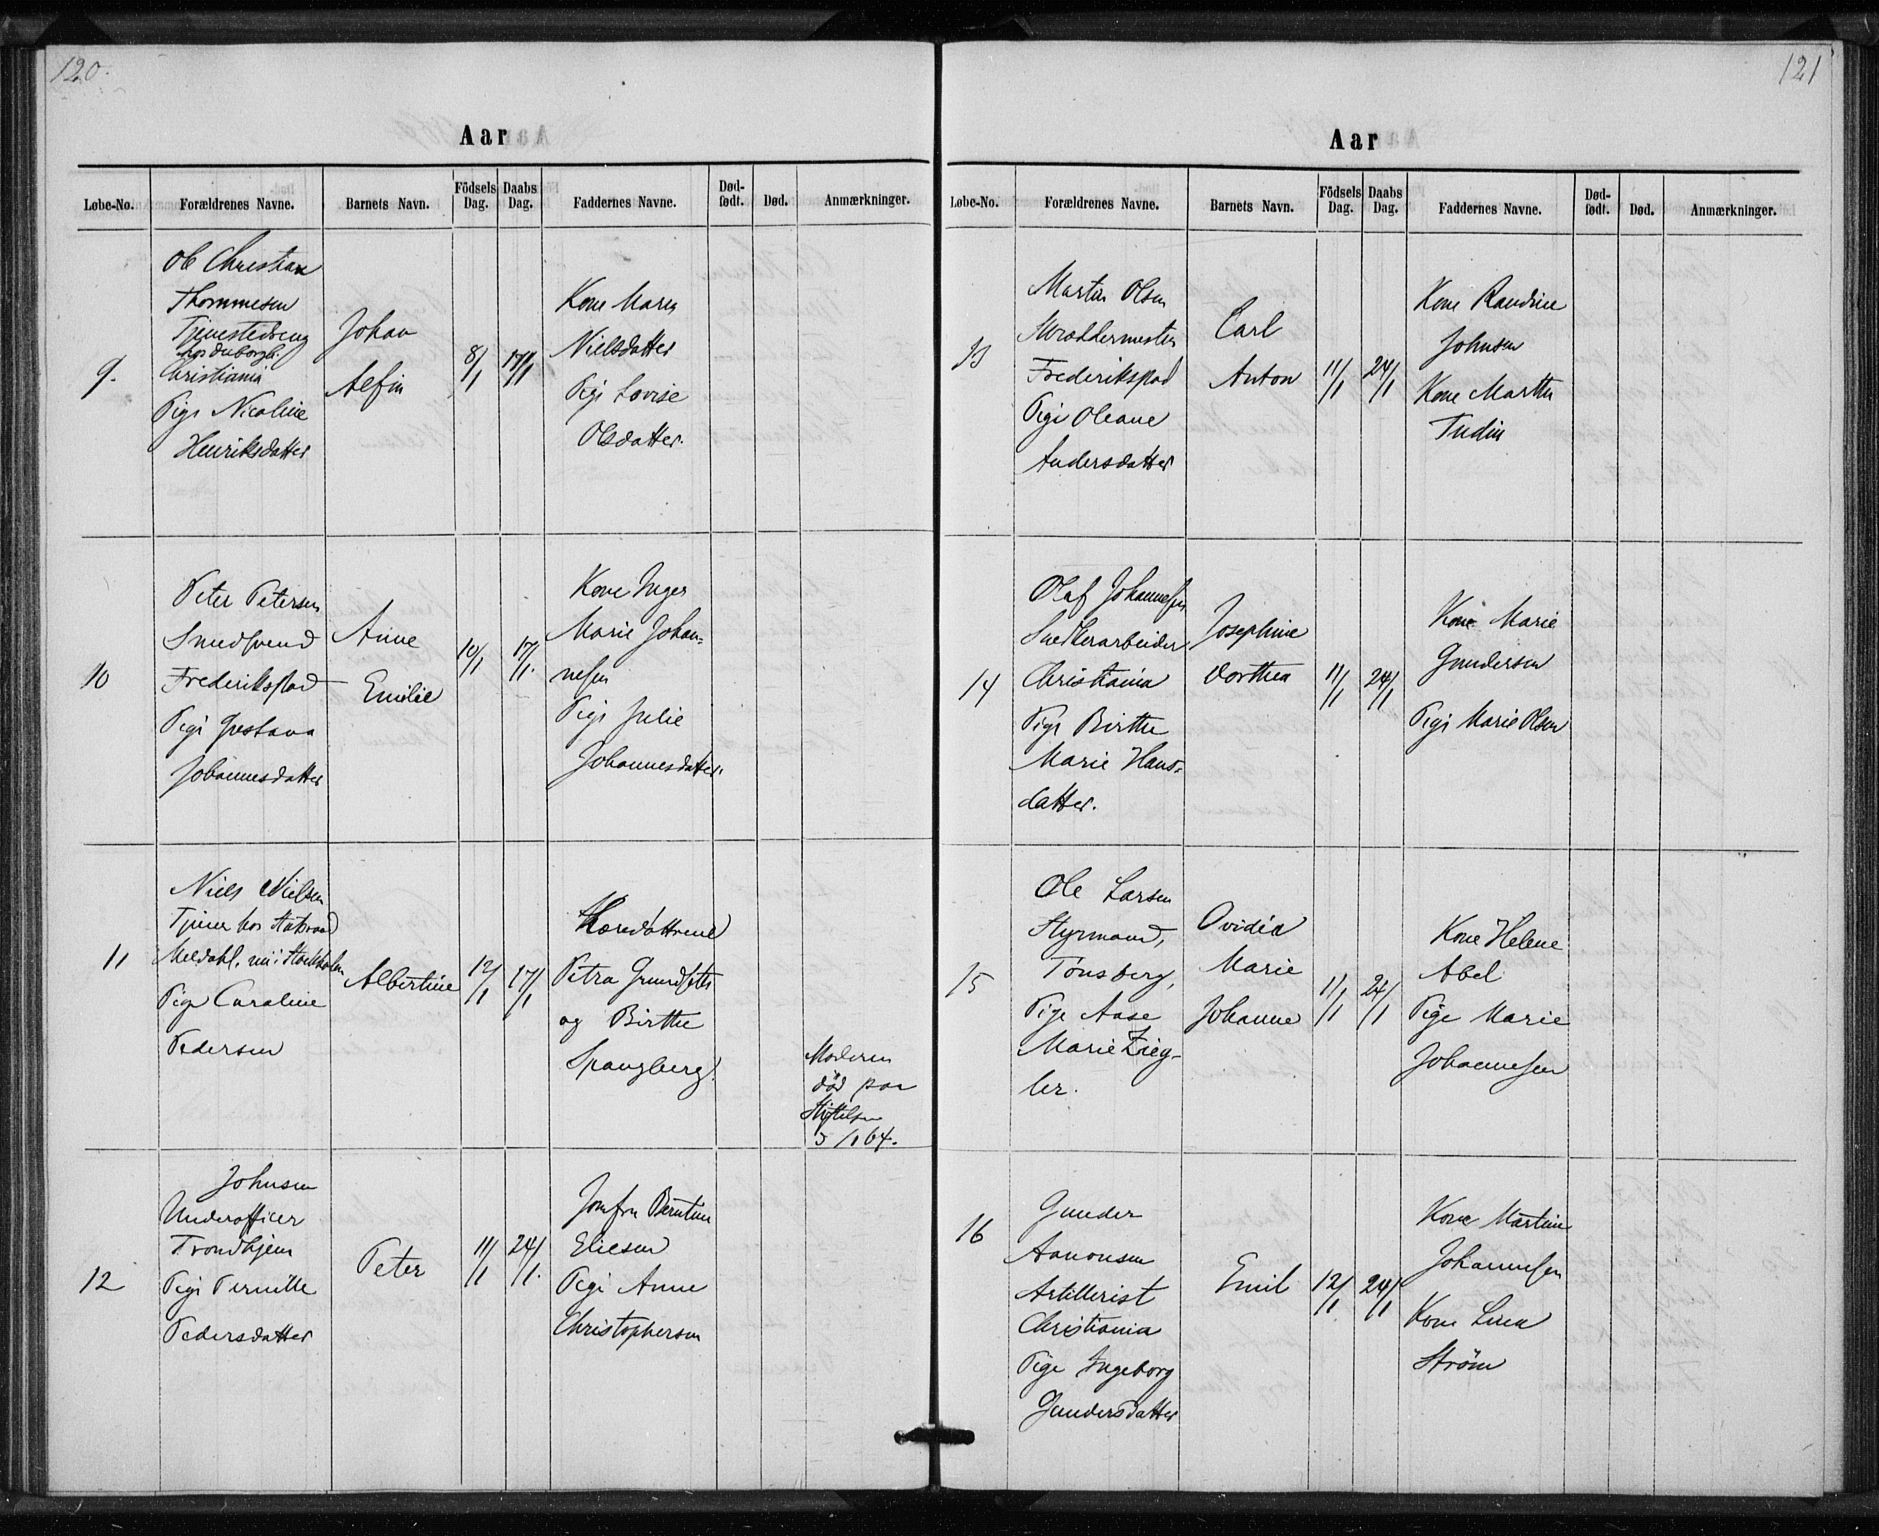 120.
Aar
Løbe-No. Forældrenes Navne. Barnets Navn. Födsels Dag. Daabs Dag. Faddernes Navne. Død-født. Død. Anmærkninger.
9.
Ole Christian
Thommesen
Tjenestedreng
Christiania
Pige Nicoline
Henriksdatter
Johan
Alfin
8/1
17/1
Kone Maren
Nielsdatter
Pige Lovise
Olsdatter.
10
Peter Petersen
Smedsvend
Frederikstad
Pige Gustava
Johannesdatter
Anne
Emilie
10/1
17/1.
Kone Inger
Marie Johan-
nesen
Pige Julie
Johannesdatter.
11
Niels Nielsen
Tjener hos Statsraad
Meldahl, nu i Stockholm
Pige Caroline
Pedersen
Albertine
12/1
17/1
Petra Grundseter
og Birthe
Spangberg.
Moderen
død paa
Stiftelsen
3/1 64.
12
Johnsen
Underofficer
Trondhjem
Pige Pernille
Pedersdatter
Peter
11/1
24/1.
Jomfru Berntine
Eliesen
Pige Anne
Christophersen
121
Aar
Løbe-No. Forældrenes Navne. Barnets Navn. Födsels Dag. Daabs Dag. Faddernes Navne. Død-født. Død. Anmærkninger.
13
Martin Olsen
Skræddermester
Frederikstad
Pige Oleane
Andersdatter
Carl
Anton
11/1
24/1
Kone Randine
Johnsen
Kone Marthe
Tudin
14
Olaf Johannesen
Snedkerarbeider
Christiania
Pige Birthe
Marie Hans-
datter.
Josephine
Dorthea
11/1
24/1
Kone Marie
Gundersen
Pige Marie Olsen
15
Ole Larsen
Styrmand,
Tønsberg,
Pige Aase
Marie Zieg-
ler.
Ovidia
Marie
Johanne
11/1
24/1
Kone Helene
Abel
Pige Marie
Johannesen
16
Gunder
Aanonsen
Artillerist
Christiania
Pige Ingeborg
Gundersdatter
Emil
12/1
24/1
Kone Martine
Johannesen
Kone Lina
Strøm